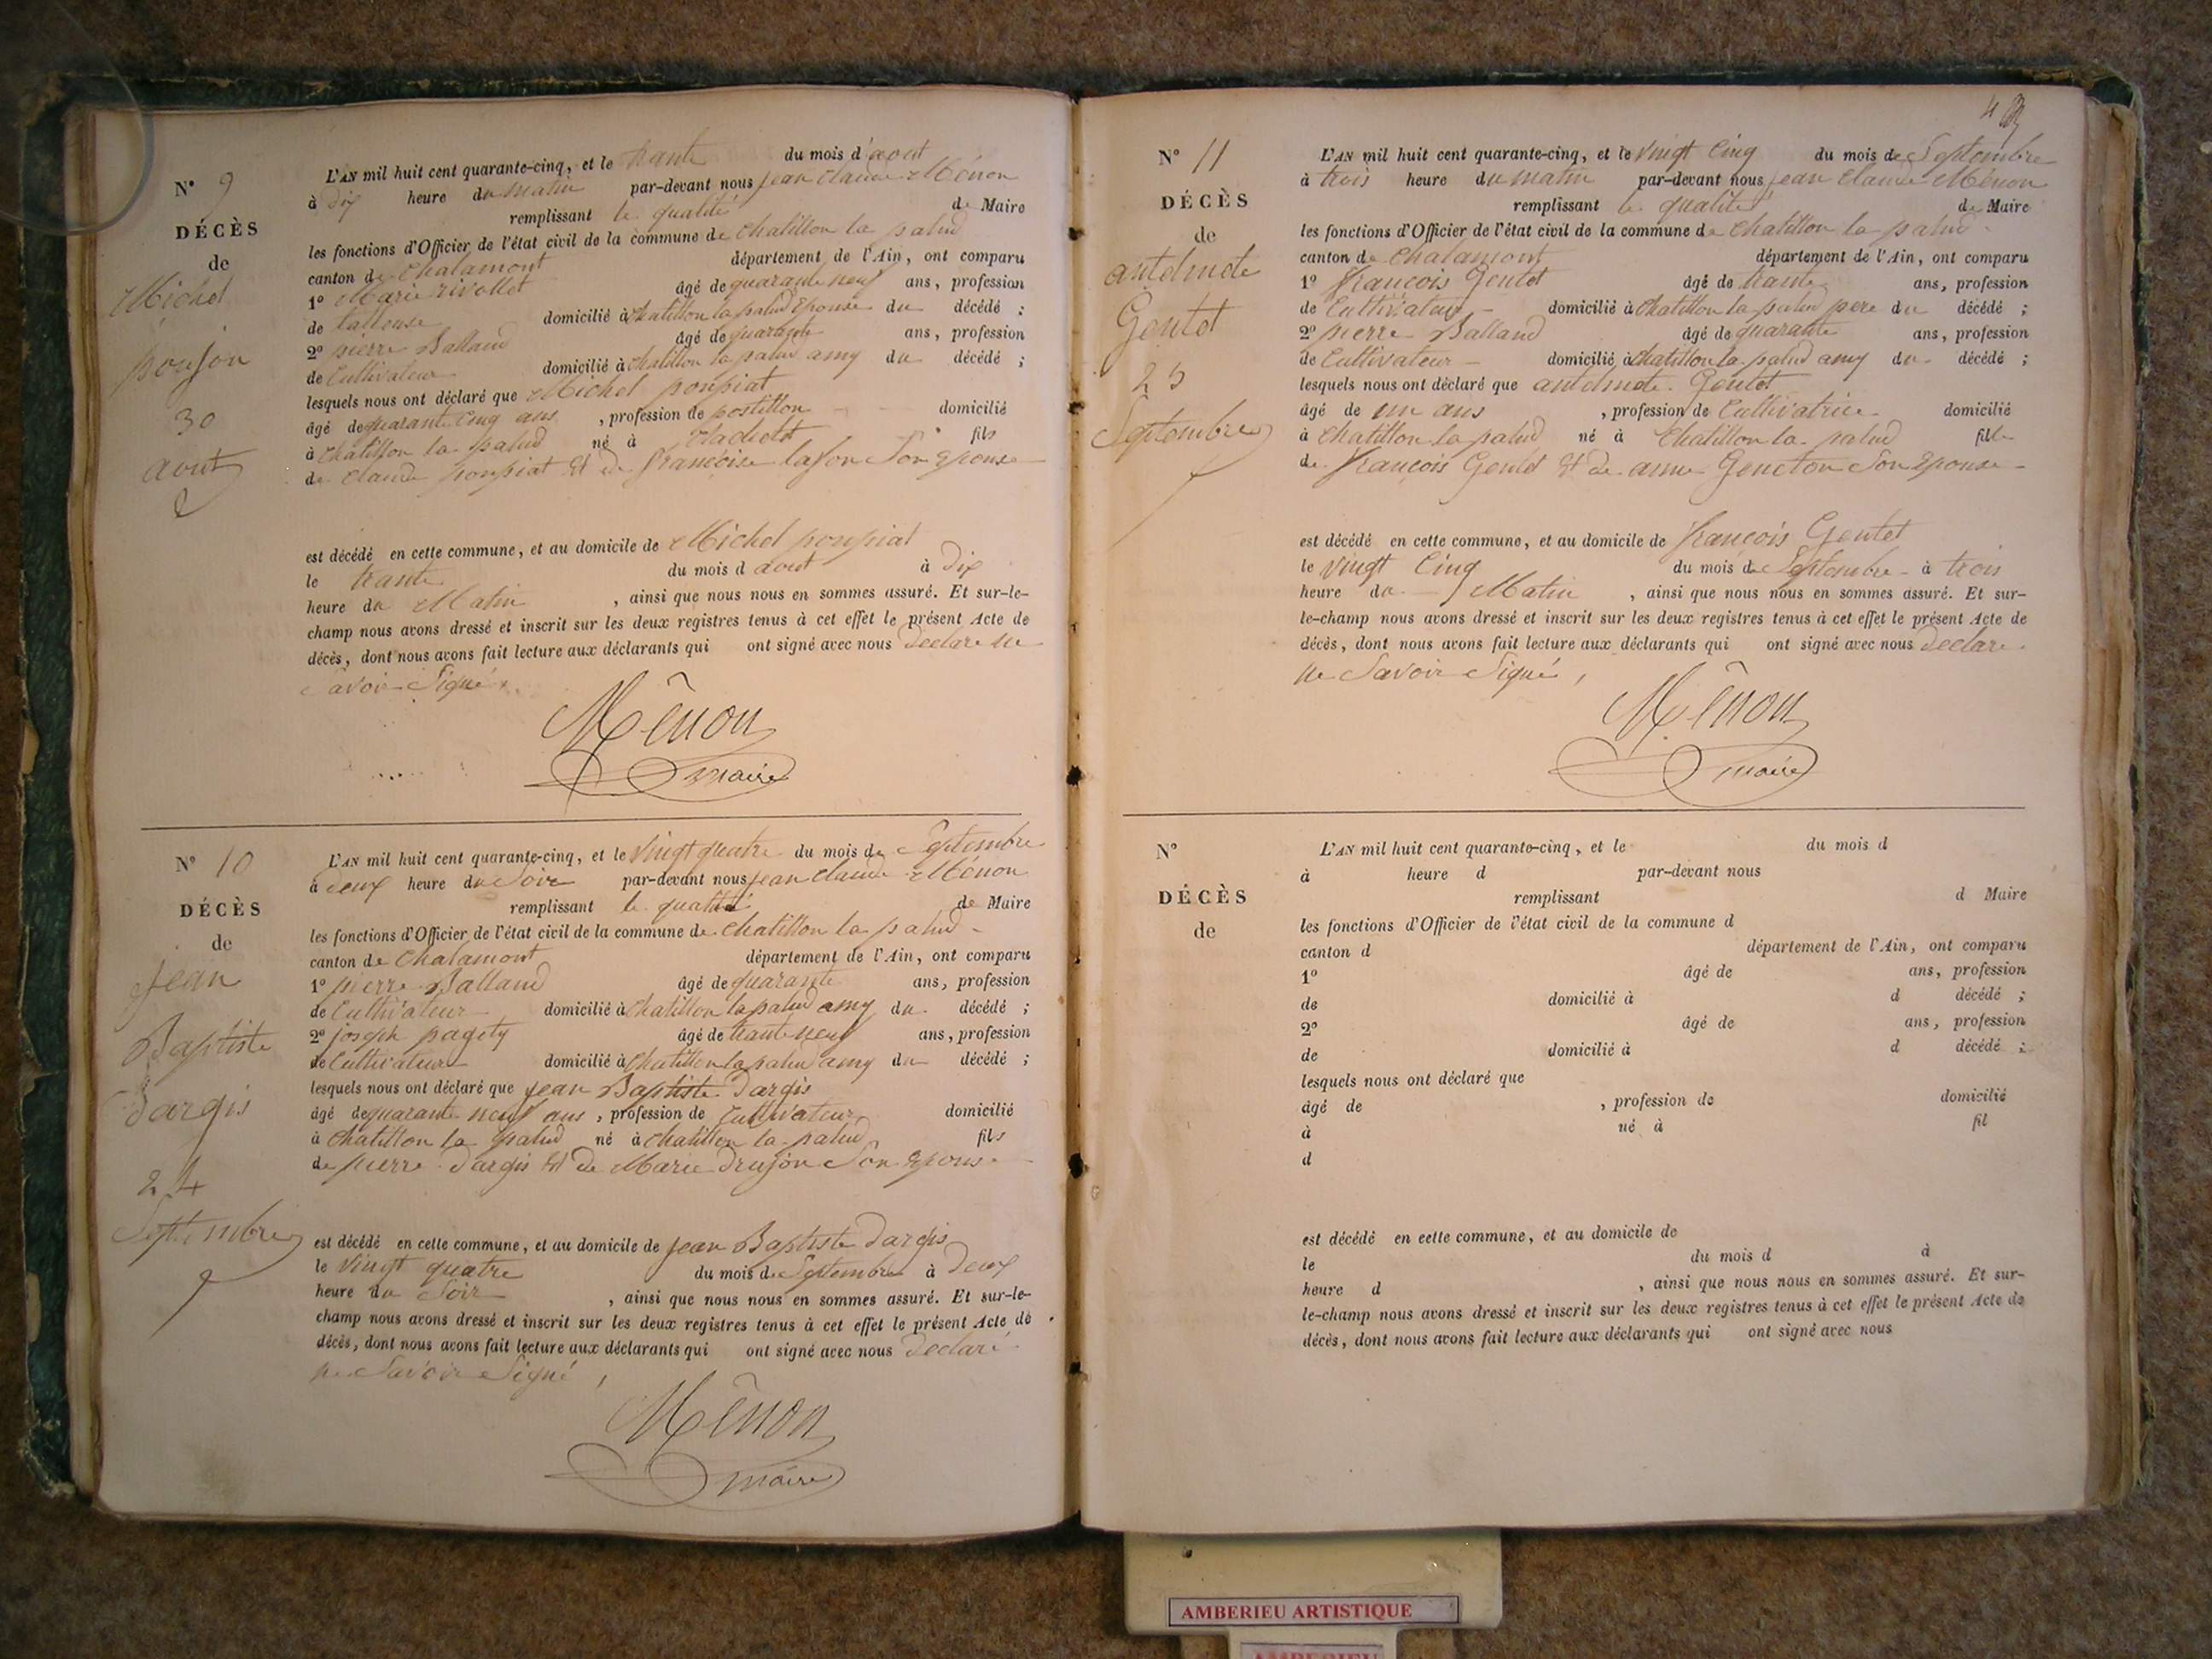 N° 9
DÉCÈS
de
Michel
30
aout
L'AN mil huit cent quarante-cinq, et le trante du mois d'aout
à dix heure du matin par-devant nous jean claude Ménon
remplissant le qualité de Maire
les fonctions d'Officier de l'état civil de la commune de chatillon la palud
canton de Chalamont département de l'Ain, ont comparu
1° Marie rivollet âgé de quarante neuf ans, profession
de tailleuse domicilié à chatillon la palud Epouse du décédé ;
2° pierre Balland âgé de quarante ans, profession
de Cultivateur domicilié à chatillon la palud amy du décédé ;
lesquels nous ont déclaré que Michel ponpiat
âgé de quarante Cinq ans , profession de postillon domicilié
à chatillon la palud né à fils
de Claude ponpiat Et de françoise Son Epouse
est décédé en cette commune, et au domicile de Michel ponpiat
le trante du mois d aout à Dix
heure du Matin , ainsi que nous nous en sommes assuré. Et sur-le-
champ nous avons dressé et inscrit sur les deux registres tenus à cet effet le présent Acte de
décès, dont nous avons fait lecture aux déclarants qui ont signé avec nous Declare ne
Savoir Signé
Mênon
maire
N° 10
DÉCÈS
de
Jean
Baptiste
Dargis
24
Septembre
L'AN mil huit cent quarante-cinq, et le Vingt quatre du mois de Septembre
à deux heure du Soir par-devant nous jean claude Ménon
remplissant le qualité de Maire
les fonctions d'Officier de l'état civil de la commune de chatillon la palud
canton de Chalamont département de l'Ain, ont comparu
1° pierre Balland âgé de quarante ans, profession
de Cultivateur domicilié à chatillon la palud amy du décédé ;
2° joseph pagety âgé de trante neuf ans, profession
de Cultivateur domicilié à Chatillon la palud amy du décédé ;
lesquels nous ont déclaré que jean Baptiste Dargis
âgé de quarante neuf ans , profession de Cultivateur domicilié
à chatillon la palud né à chatillon la palud fils
de pierre Dargis Et de Marie Drujon Son Epouse
est décédé en cette commune, et au domicile de jean Baptiste Dargis
le Vingt quatre du mois de Septembre à Deux
heure du Soir , ainsi que nous nous en sommes assuré. Et sur-le-
champ nous avons dressé et inscrit sur les deux registres tenus à cet effet le présent Acte de
décès, dont nous avons fait lecture aux déclarants qui ont signé avec nous Declaré
ne Savoir Signé,
Mênon
maire
N° 11
DÉCÈS
de
Goutet
Septembre
L'AN mil huit cent quarante-cinq, et le Vingt Cinq du mois de Septembre
à trois heure du matin par-devant nous jean Claude Ménon
remplissant le qualité de Maire
les fonctions d'Officier de l'état civil de la commune de chatillon la palud
canton de Chalamont département de l'Ain, ont comparu
1° françois Goutet âgé de trante ans, profession
de Cultivateur domicilié à chatillon la palud pere du décédé ;
2° pierre Balland âgé de quarante ans, profession
de Cultivateur domicilié à chatillon la palud amy du décédé ;
lesquels nous ont déclaré que Goutet
âgé de un ans , profession de Cultivatrice domicilié
à Chatillon la palud né à Chatillon la palud fille
de françois Goutet Et de anne Son Epouse
est décédé en cette commune, et au domicile de françois Goutet
le Vingt Cinq du mois de Septembre à trois
heure du Matin , ainsi que nous nous en sommes assuré. Et sur-
le-champ nous avons dressé et inscrit sur les deux registres tenus à cet effet le présent Acte de
décès, dont nous avons fait lecture aux déclarants qui ont signé avec nous Declare
ne Savoir Signé,
Mênon
maire
N°
DÉCÈS
de
L'AN mil huit cent quarante-cinq, et le du mois d
à heure d par-devant nous
remplissant d Maire
les fonctions d'Officier de l'état civil de la commune d
canton d département de l'Ain, ont comparu
1° âgé de ans, profession
de domicilié à d décédé ;
2° âgé de ans, profession
de domicilié à d décédé ;
lesquels nous ont déclaré que
âgé de , profession de domicilié
à né à fil
d
est décédé en cette commune, et au domicile de
le du mois d à
heure d , ainsi que nous nous en sommes assuré. Et sur-
le-champ nous avons dressé et inscrit sur les deux registres tenus à cet effet le présent Acte de
décès, dont nous avons fait lecture aux déclarants qui ont signé avec nous
AMBERIEU ARTISTIQUE